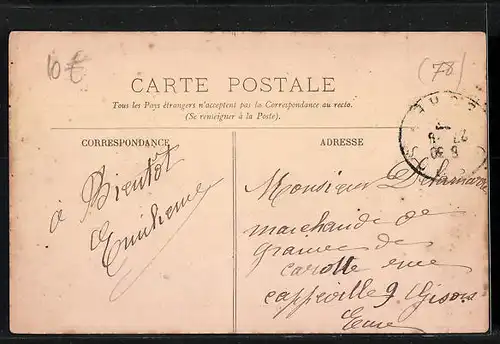 10 €
(78)
CARTE POSTALE
Tous les Pays étrangers n'acceptent pas la Correspondance au recto.
(Se renseigner à la Poste).
CORRESPONDANCE
ADRESSE
à Bientôt
Monsieur Delamare
marchand de
graines de
carotte rue
cappeville 9 Gisors
Eure